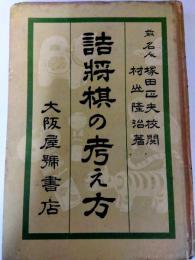 前名人 塚田正夫校閲
村山隆治著
詰将棋の考え方
大阪屋號書店